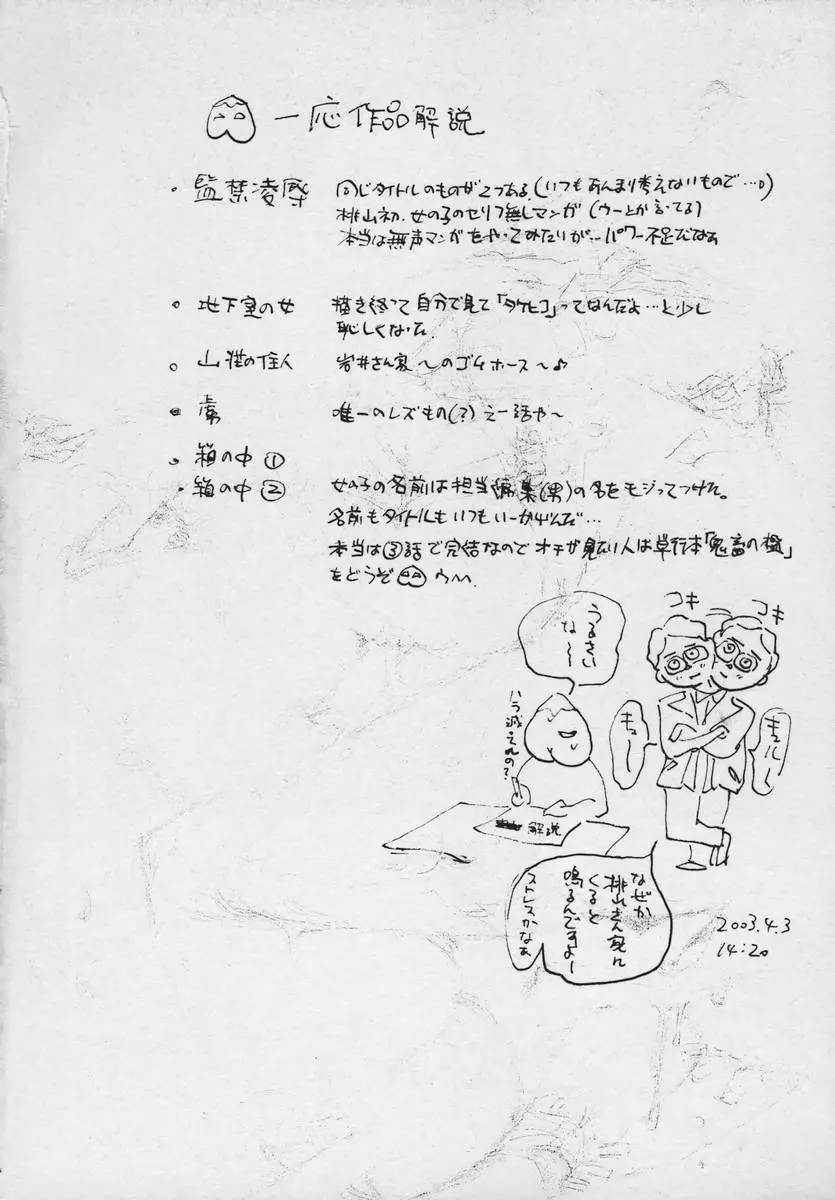 一応作品解説
・監禁凌辱 同じタイトルのものが2つある。(いつもあんまり考えないもので…。)
桃山初、女の子のセリフ無しマンガ(ウーとか言ってる)
本当は無声マンガをやってみたいが…パワー不足だなぁ
。地下室の女 描き終って自分で見て「タケヒコ」ってなんだよ…と少し
恥しくなった
。山荘の住人 岩井さん家〜のゴムホース〜♪
唯一のレズもの(?)えー話や〜
。箱の中①
・箱の中② 女の子の名前は担当編集(男)の名をモジってつけた。
名前もタイトルもいつもいーかげんだ…
本当は③話で完結なのでオチが見たい人は単行本「鬼畜の檻」
をどうぞ ウハハ
うるさい
な〜〜
ハラ減ってんの?
コキ
コキ
キュ〜
キュル〜
解説
なぜか
桃山さん家に
くると
鳴るんですよー
ストレスかなぁ
2003.4.3
14:20